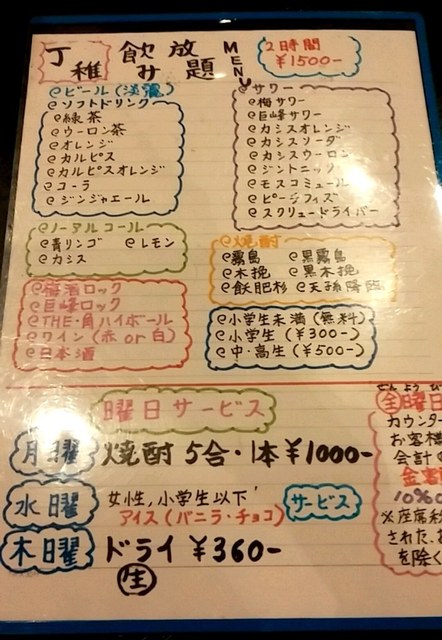 丁稚 飲み放題 MENU
2時間
¥1500-
@ビール(淡麗)
@ソフトドリンク
@緑茶
@ウーロン茶
@オレンジ
@カルピス
@カルピスオレンジ
@コーラ
@ジンジャエール
@サワー
@梅サワー
@巨峰サワー
@カシスオレンジ
@カシスソーダ
@カシスウーロン
@ジントニック
@モスコミュール
@ピーチフィズ
@スクリュードライバー
@ノーアルコール
@青リンゴ @レモン
@カシス
@焼酎
@霧島 @黒霧島
@木挽 @黒木挽
@飫肥杉 @天孫降臨
@梅酒ロック
@巨峰ロック
@THE・角ハイボール
@ワイン(赤or白)
@日本酒
@小学生未満(無料)
@小学生(¥300-)
@中・高生(¥500-)
曜日サービス
月曜 焼酎5合・1本¥1000-
水曜 女性,小学生以下
アイス(バニラ・チョコ) サービス
木曜 ドライ¥360-
生
全曜日
カウンター
お客様
会計の
10%
※座席
された
を除く